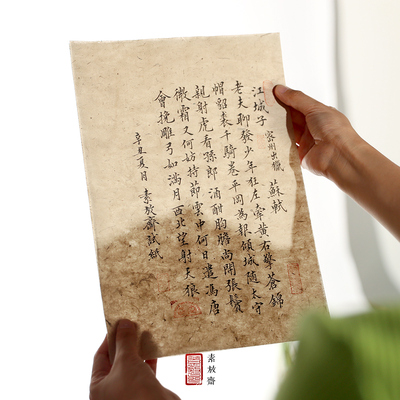 江城子 密州出獵 蘇軾
老夫聊發少年狂左牽黃右擎蒼錦
帽貂裘千騎卷平岡為報傾城隨太守
親射虎看孫郎酒酣胸膽尚開張鬢
微霜又何妨持節雲中何日遣馮唐
會挽雕弓如滿月西北望射天狼
辛丑夏月 素敖齋試紙
素敖齋